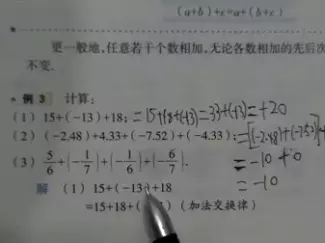 (a+b)+c=a+(b+c)
更一般地,任意若干个数相加,无论各数相加的先后次
不变.
例 3 计算:
(1) 15+(-13)+18; =15+18+(-13)=33+(-13)=+20
(2) (-2.48)+4.33+(-7.52)+(-4.33); =[(-2.48)+(-7.52)]
=-10+0
(3) 5/6+(-1/7)+(-1/6)+(-6/7).
=-10
解 (1) 15+(-13)+18
=15+18+( ) (加法交换律)